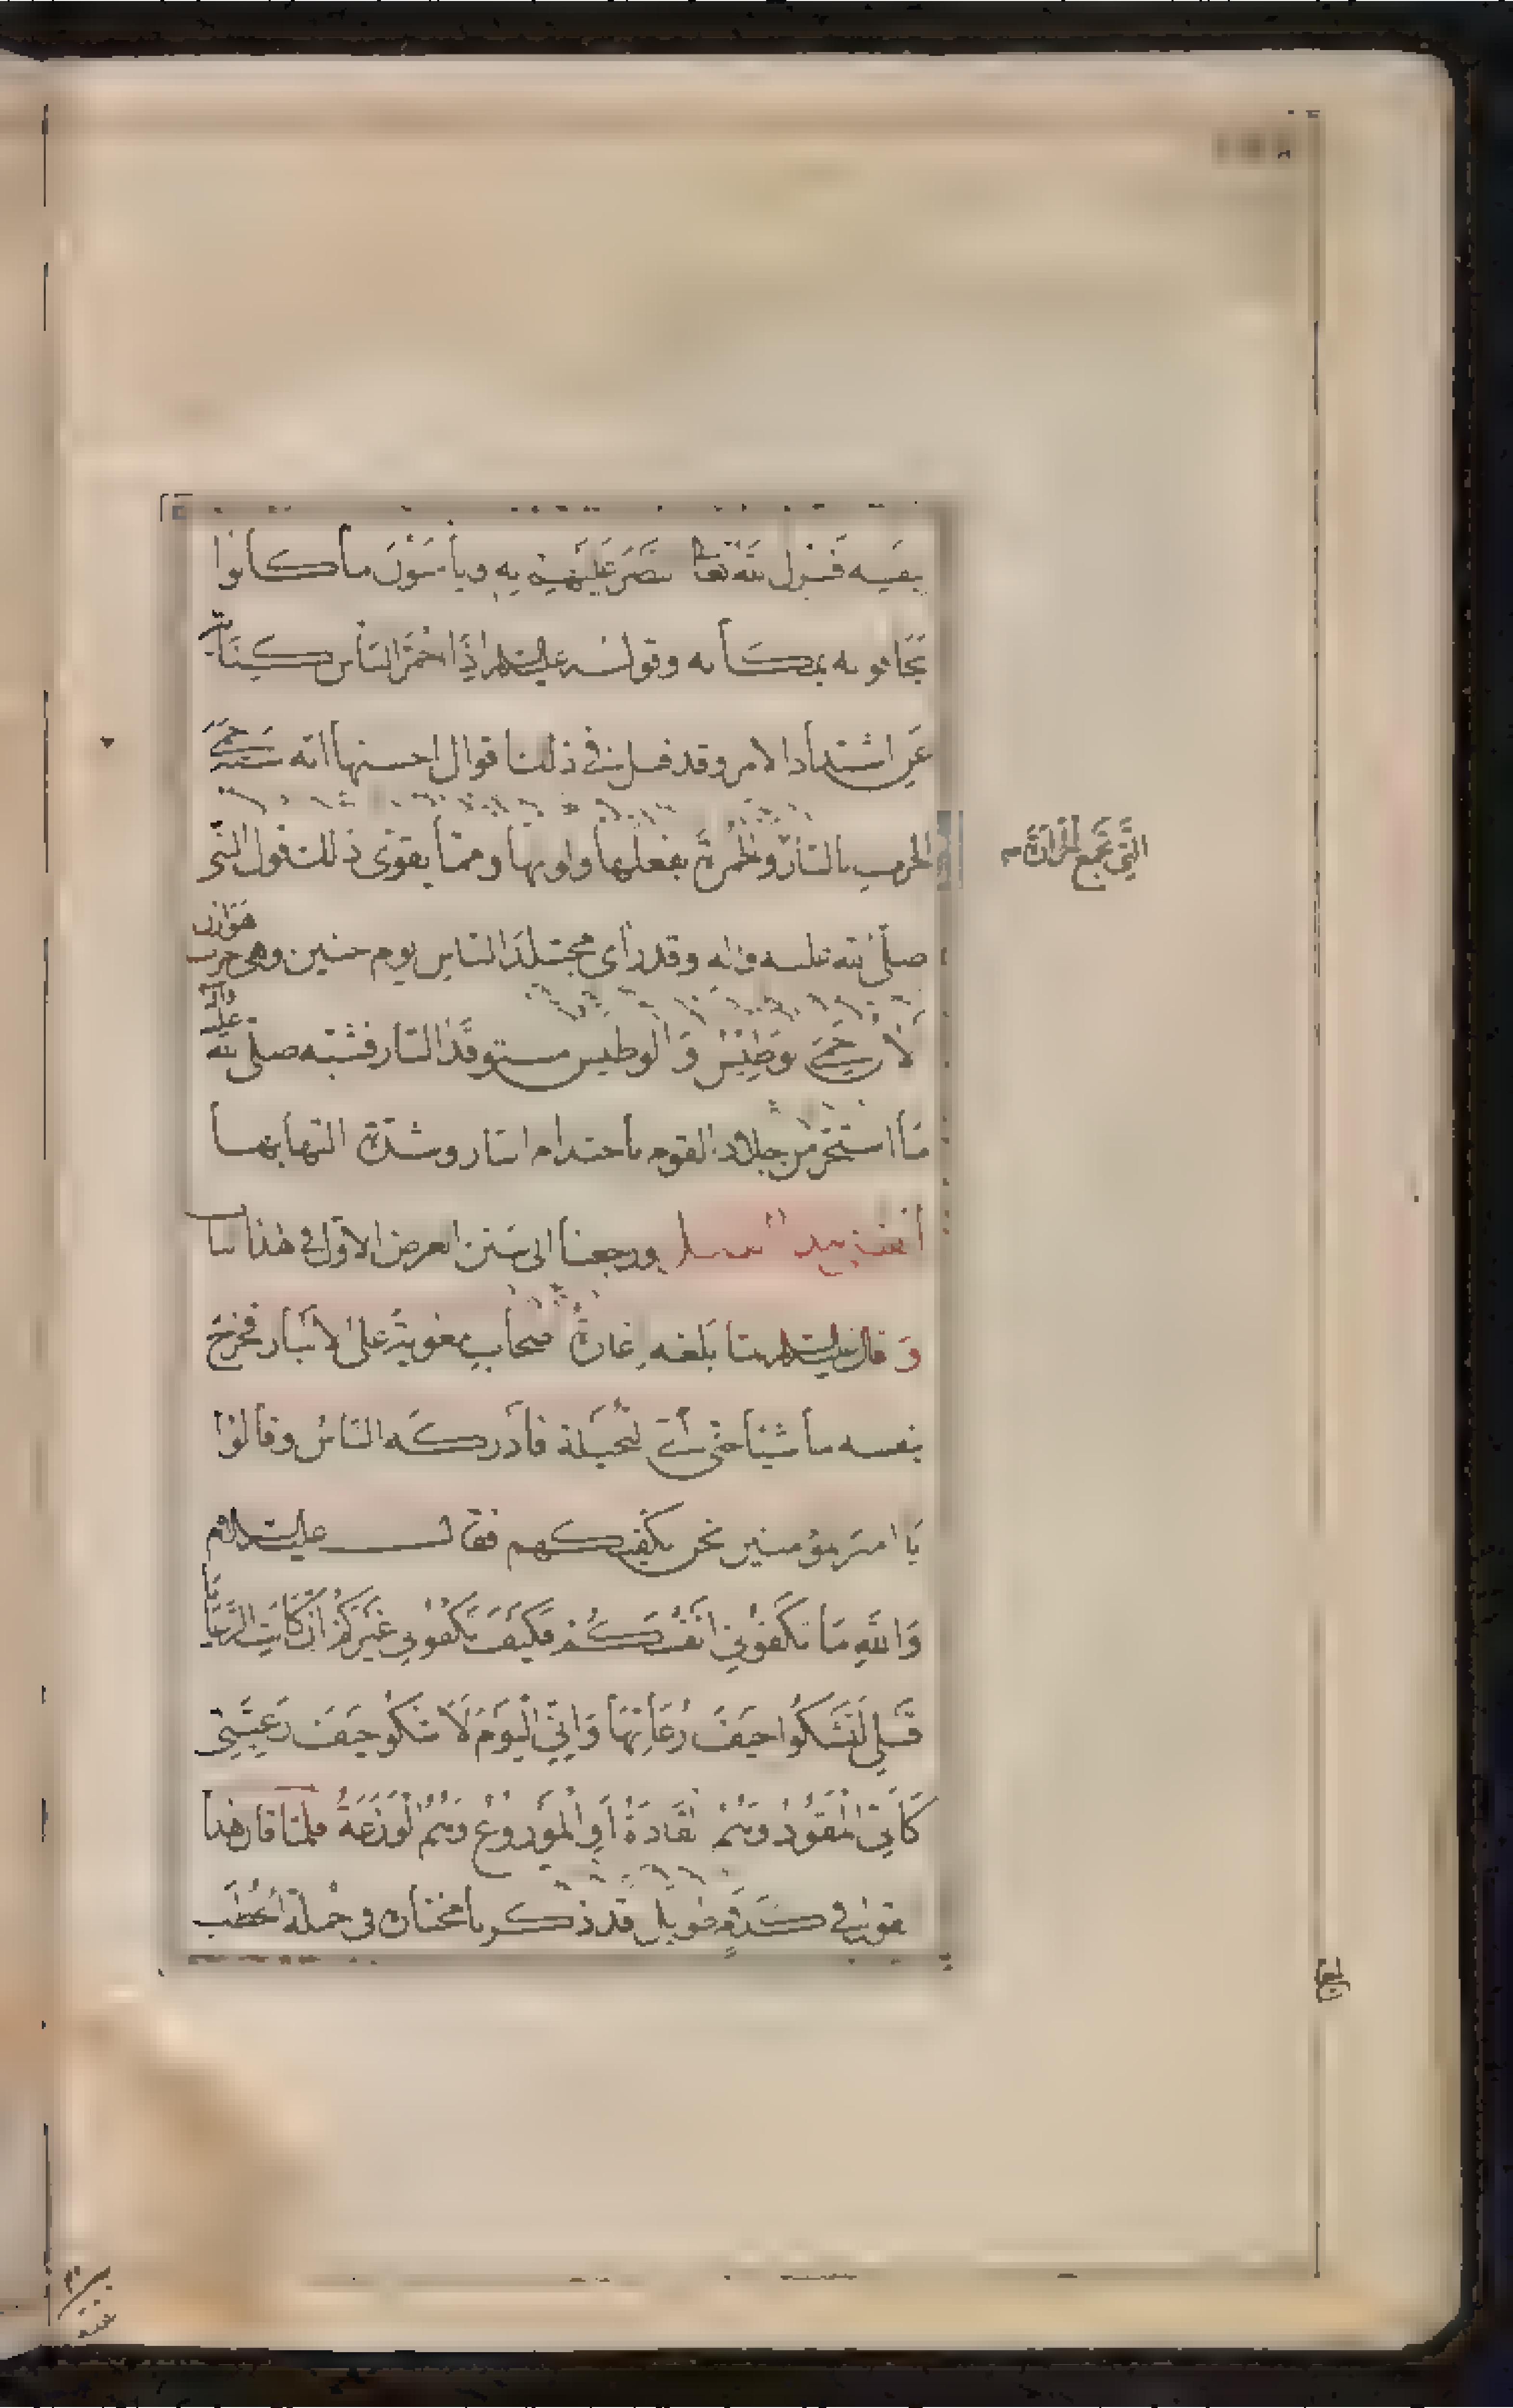 بنفسه فينزل الله تعالى النصر عليهم به ويأمنون ما كانوا
يخافونه بمكانه وقوله عليه السلام اذا احمر البأس كناية
عن اشتداد الامر وقد قيل في ذلك اقوال احسنها انه شبه حمى
الحرب بالنار التي تجمع الحرارة والحمرة بفعلها ولونها ومما يقوى ذلك قول النبي
صلى الله عليه واله وقد رأى مجتلد الناس يوم حنين وهى حرب هوازن
الان حمى الوطيس والوطيس مستوقد النار فشبه صلى الله عليه واله
ما استحر من جلاد القوم باحتدام النار وشدة التهابها
انقضى هذا الفصل ورجعنا الى سنن الغرض الاول فى هذا الباب
وقال عليه السلام لما بلغه اغارة اصحاب معوية على الانبار فخرج
بنفسه ماشيا حتى اتى النخيلة فادركه الناس وقالوا
يا امير المؤمنين نحن نكفيكهم فقال عليه السلام
والله ما تكفوننى انفسكم فكيف تكفوننى غيركم ان كانت الرعايا
قبلى لتشكوا حيف رعاتها وانى اليوم لاشكو حيف رعيتى
كاننى المقود وهم القادة او الموزوع وهم الوزعة فلما قال هذا
القول فى كلام طويل قد ذكرنا مختاره فى جملة الخطب